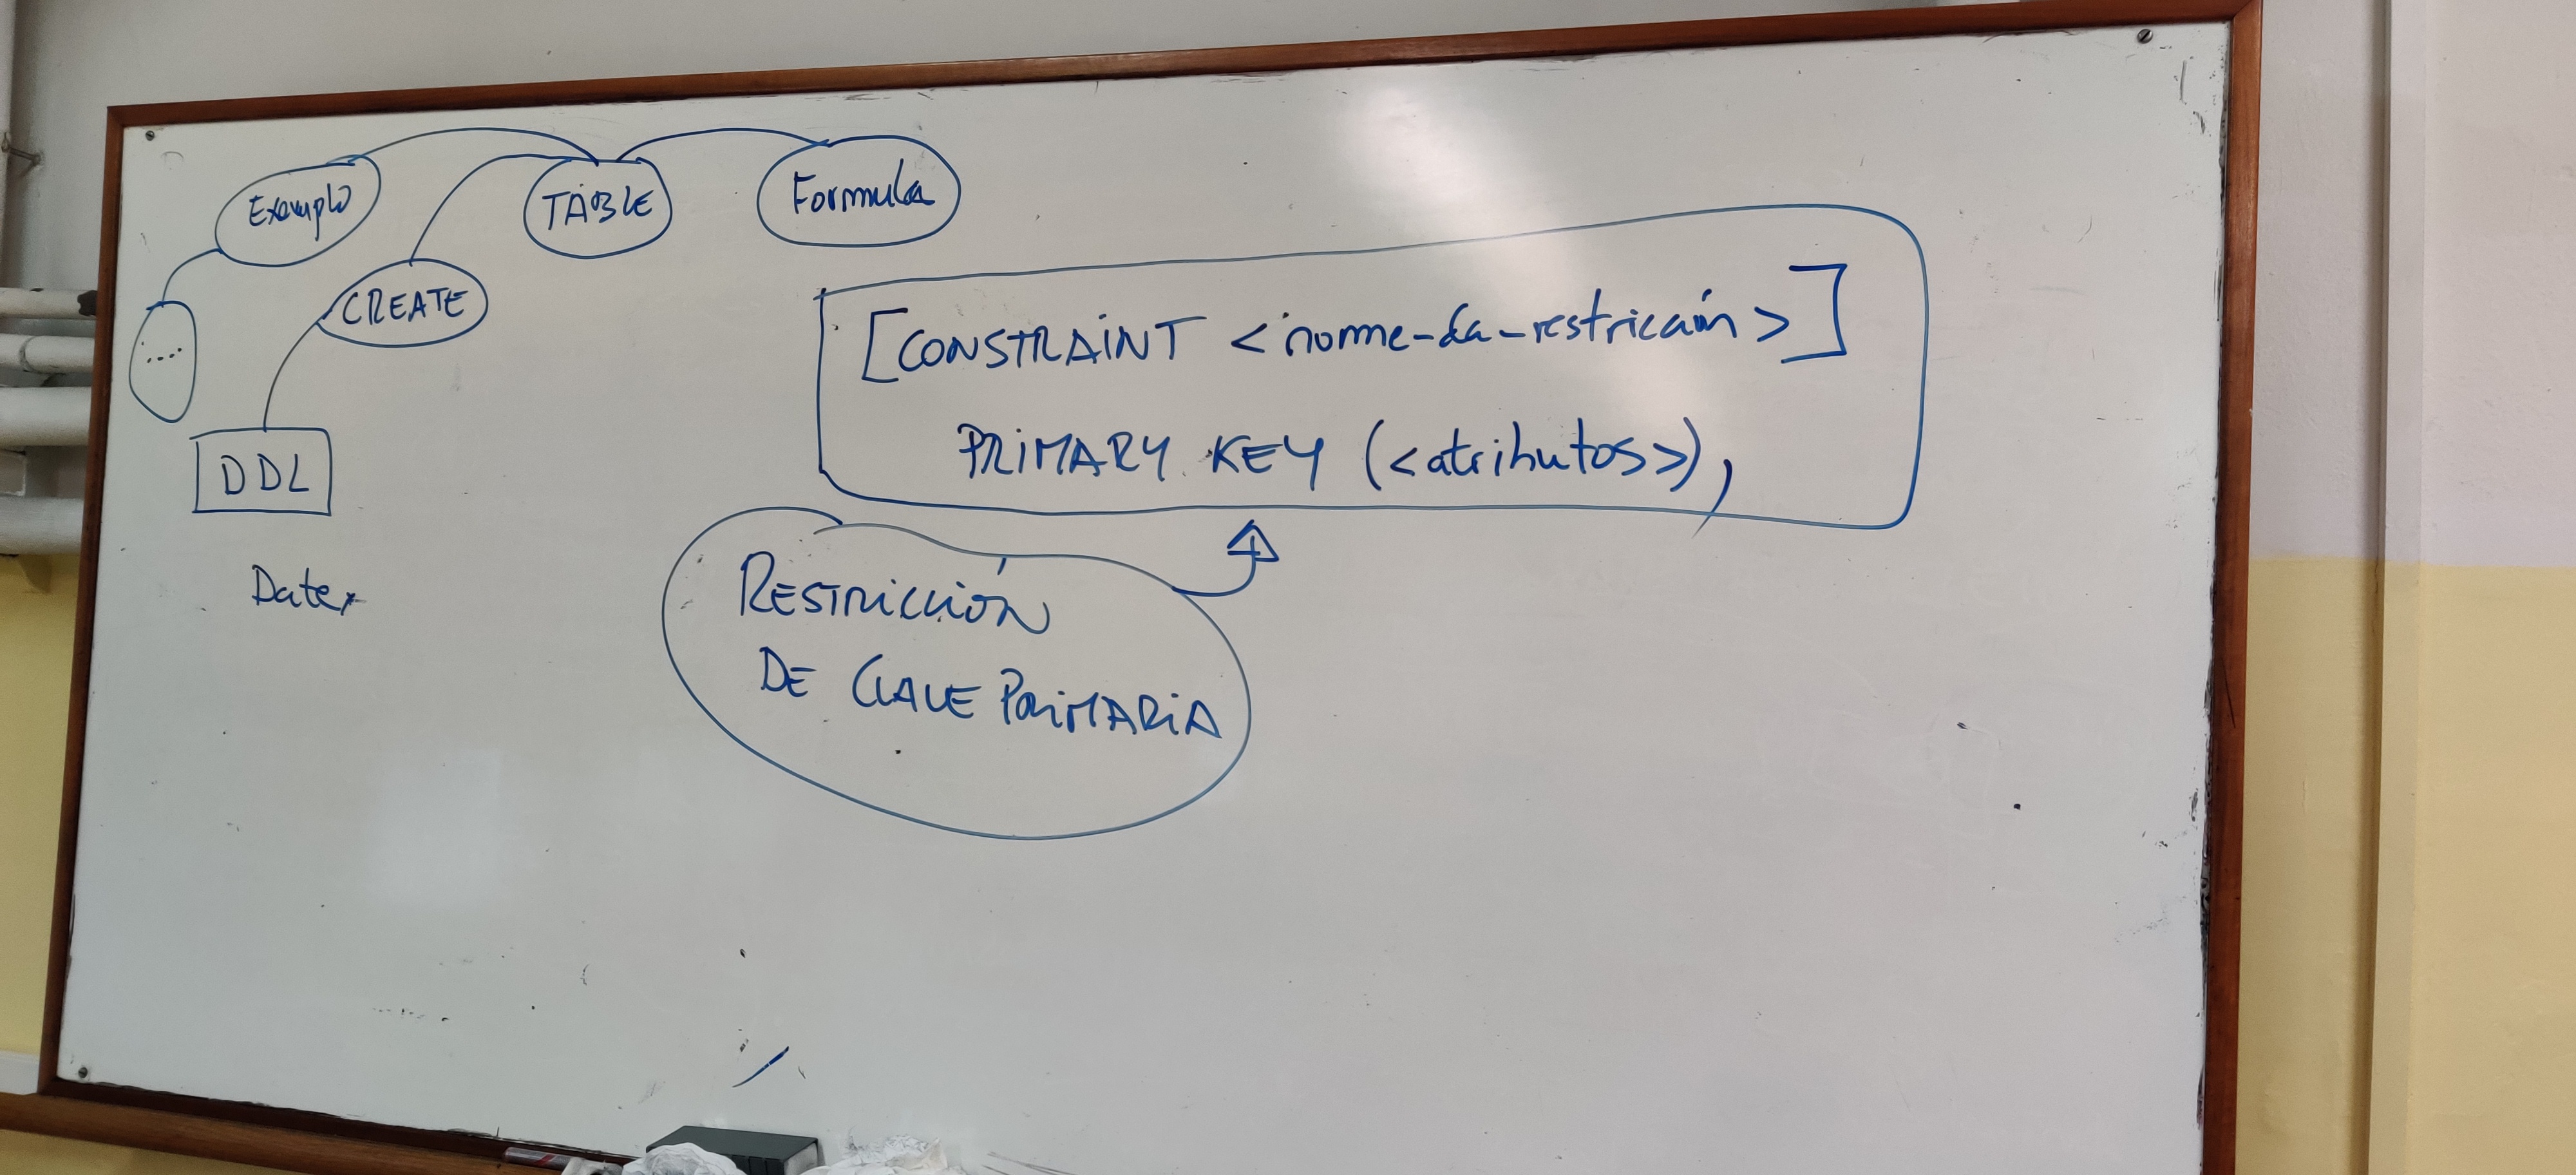 Exemplo
TABLE
Formula
CREATE
....
[CONSTRAINT <nome-da-restricción>]
PRIMARY KEY (<atributos>),
DDL
Dater
RESTRICCIÓN
DE CLAVE PRIMARIA